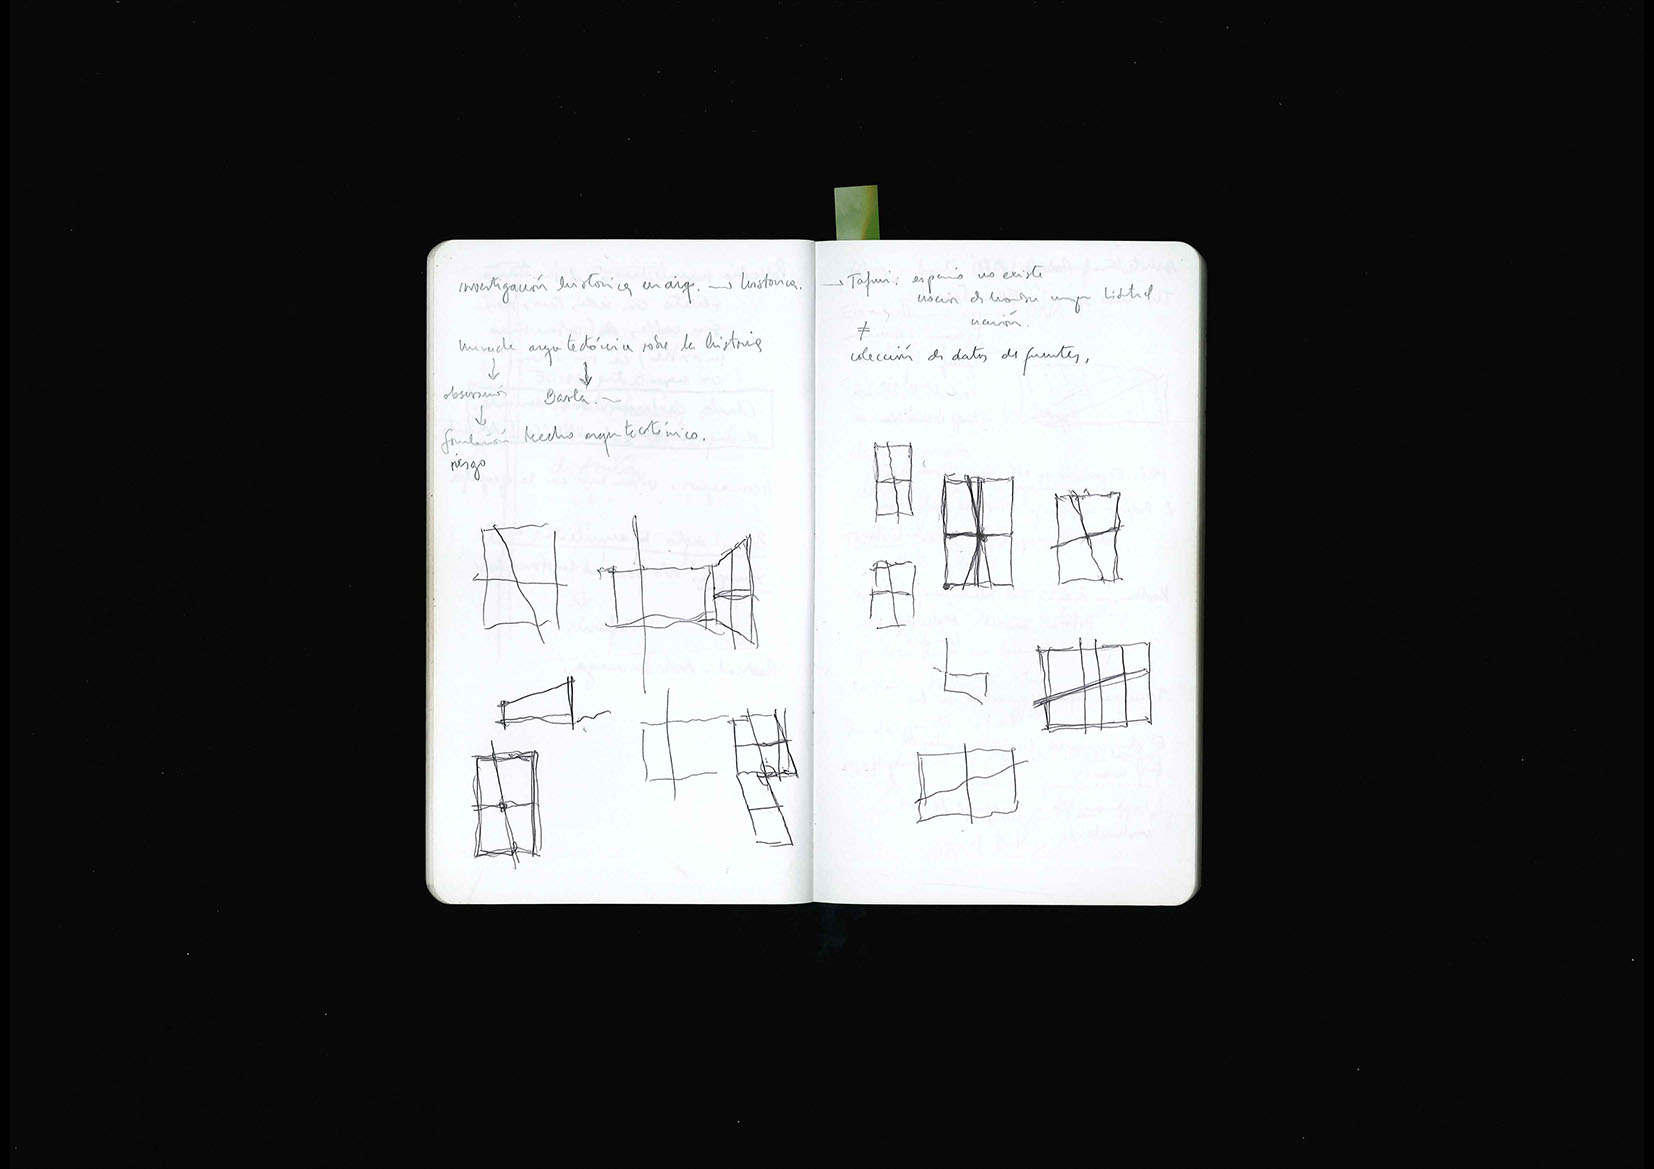 investigación histórica en arq. → historica.
mirada arquitectónica sobre la historia
observación
fundación hecho arquitectónico.
riesgo
→ Tafuri: espacio no existe
noción de
noción.
≠
colección de datos de fuentes,